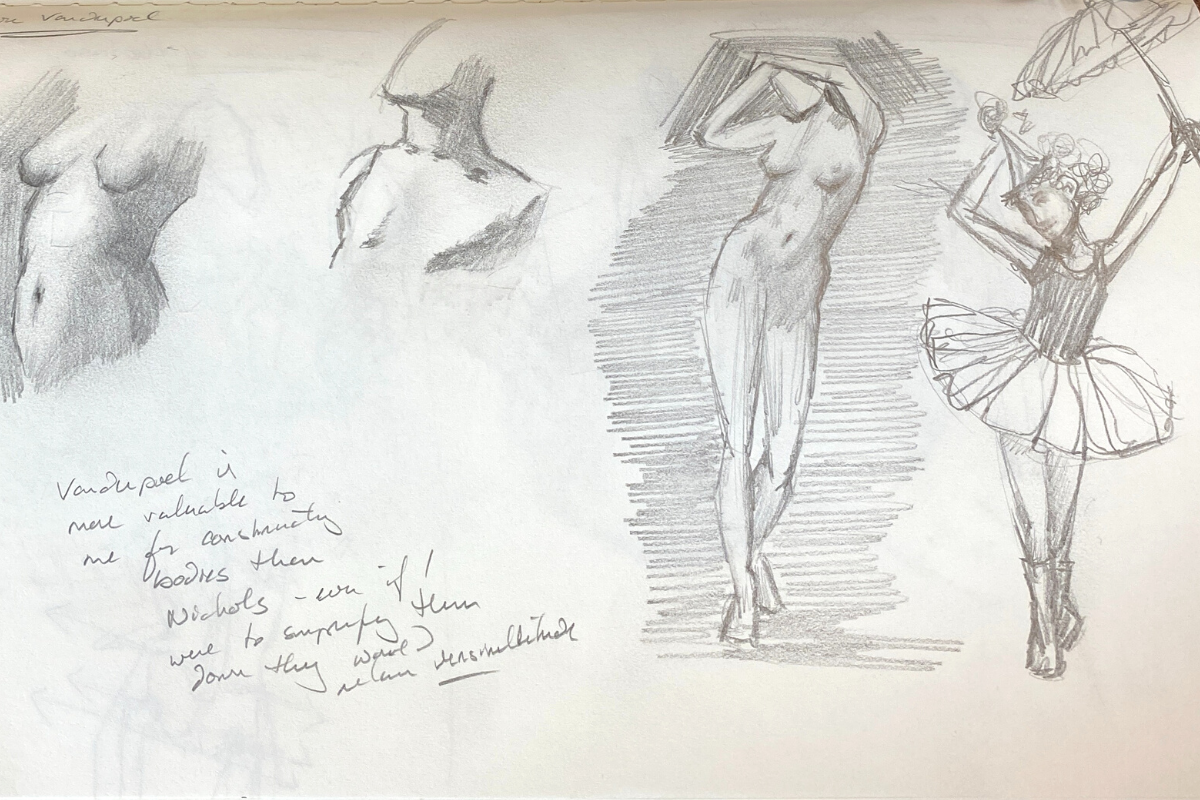 Vanderpoel
Vanderpoel is
more valuable to
me for constructing
bodies than
Nichols - even if I
were to simplify them
down they would
retain verisimilitude